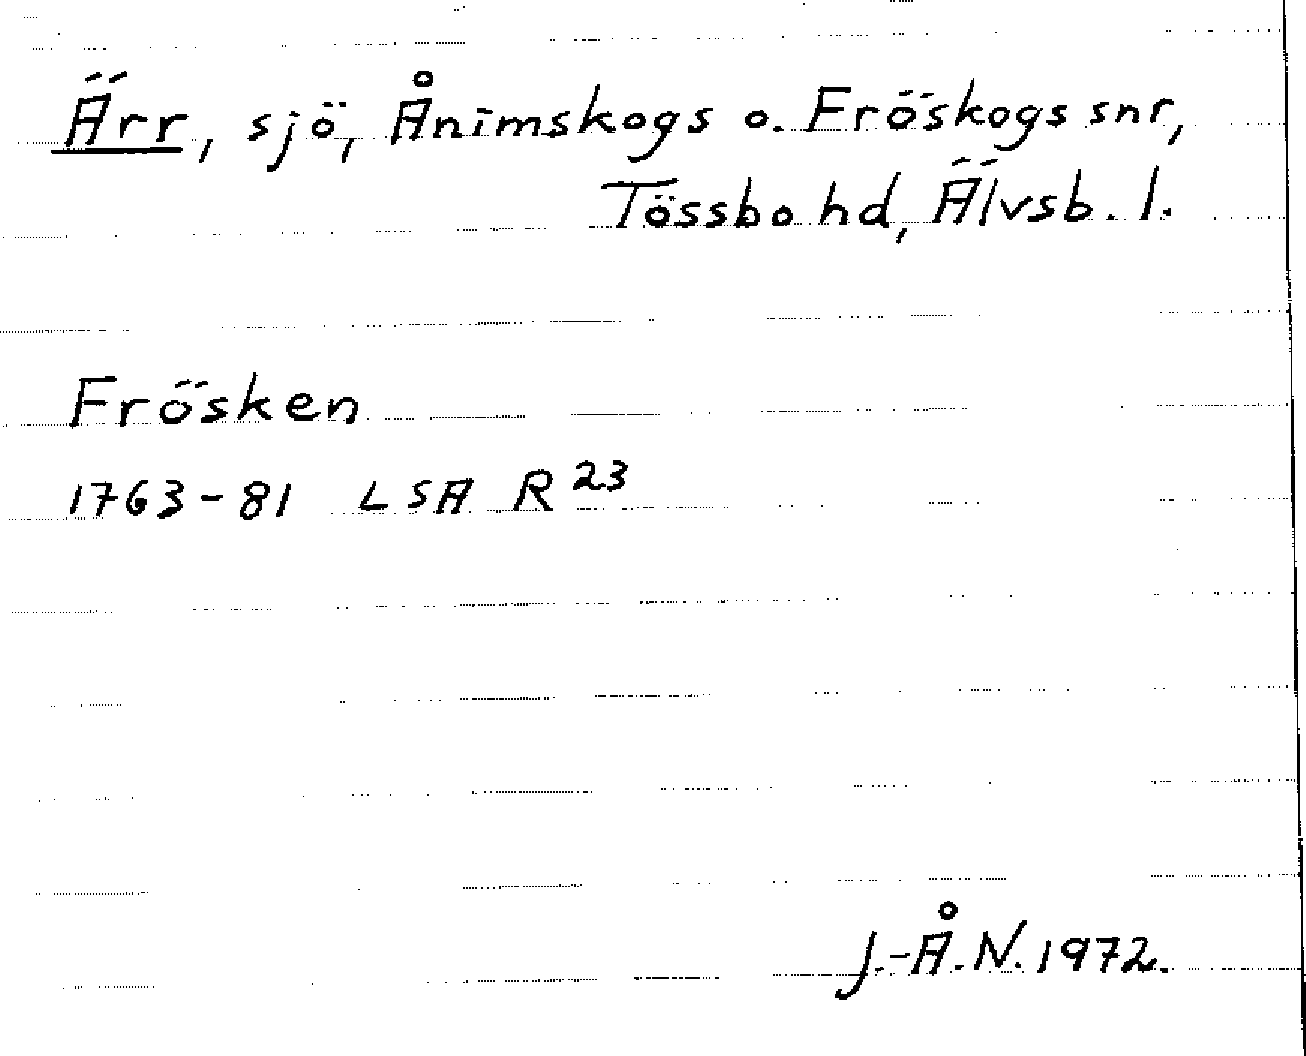 Ärr, sjö, Ånimskogs o. Fröskogs snr,
Tössbo hd, Älvsb. l.
Frösken
1763-81 LSA R 23
J.-Å.N. 1972.